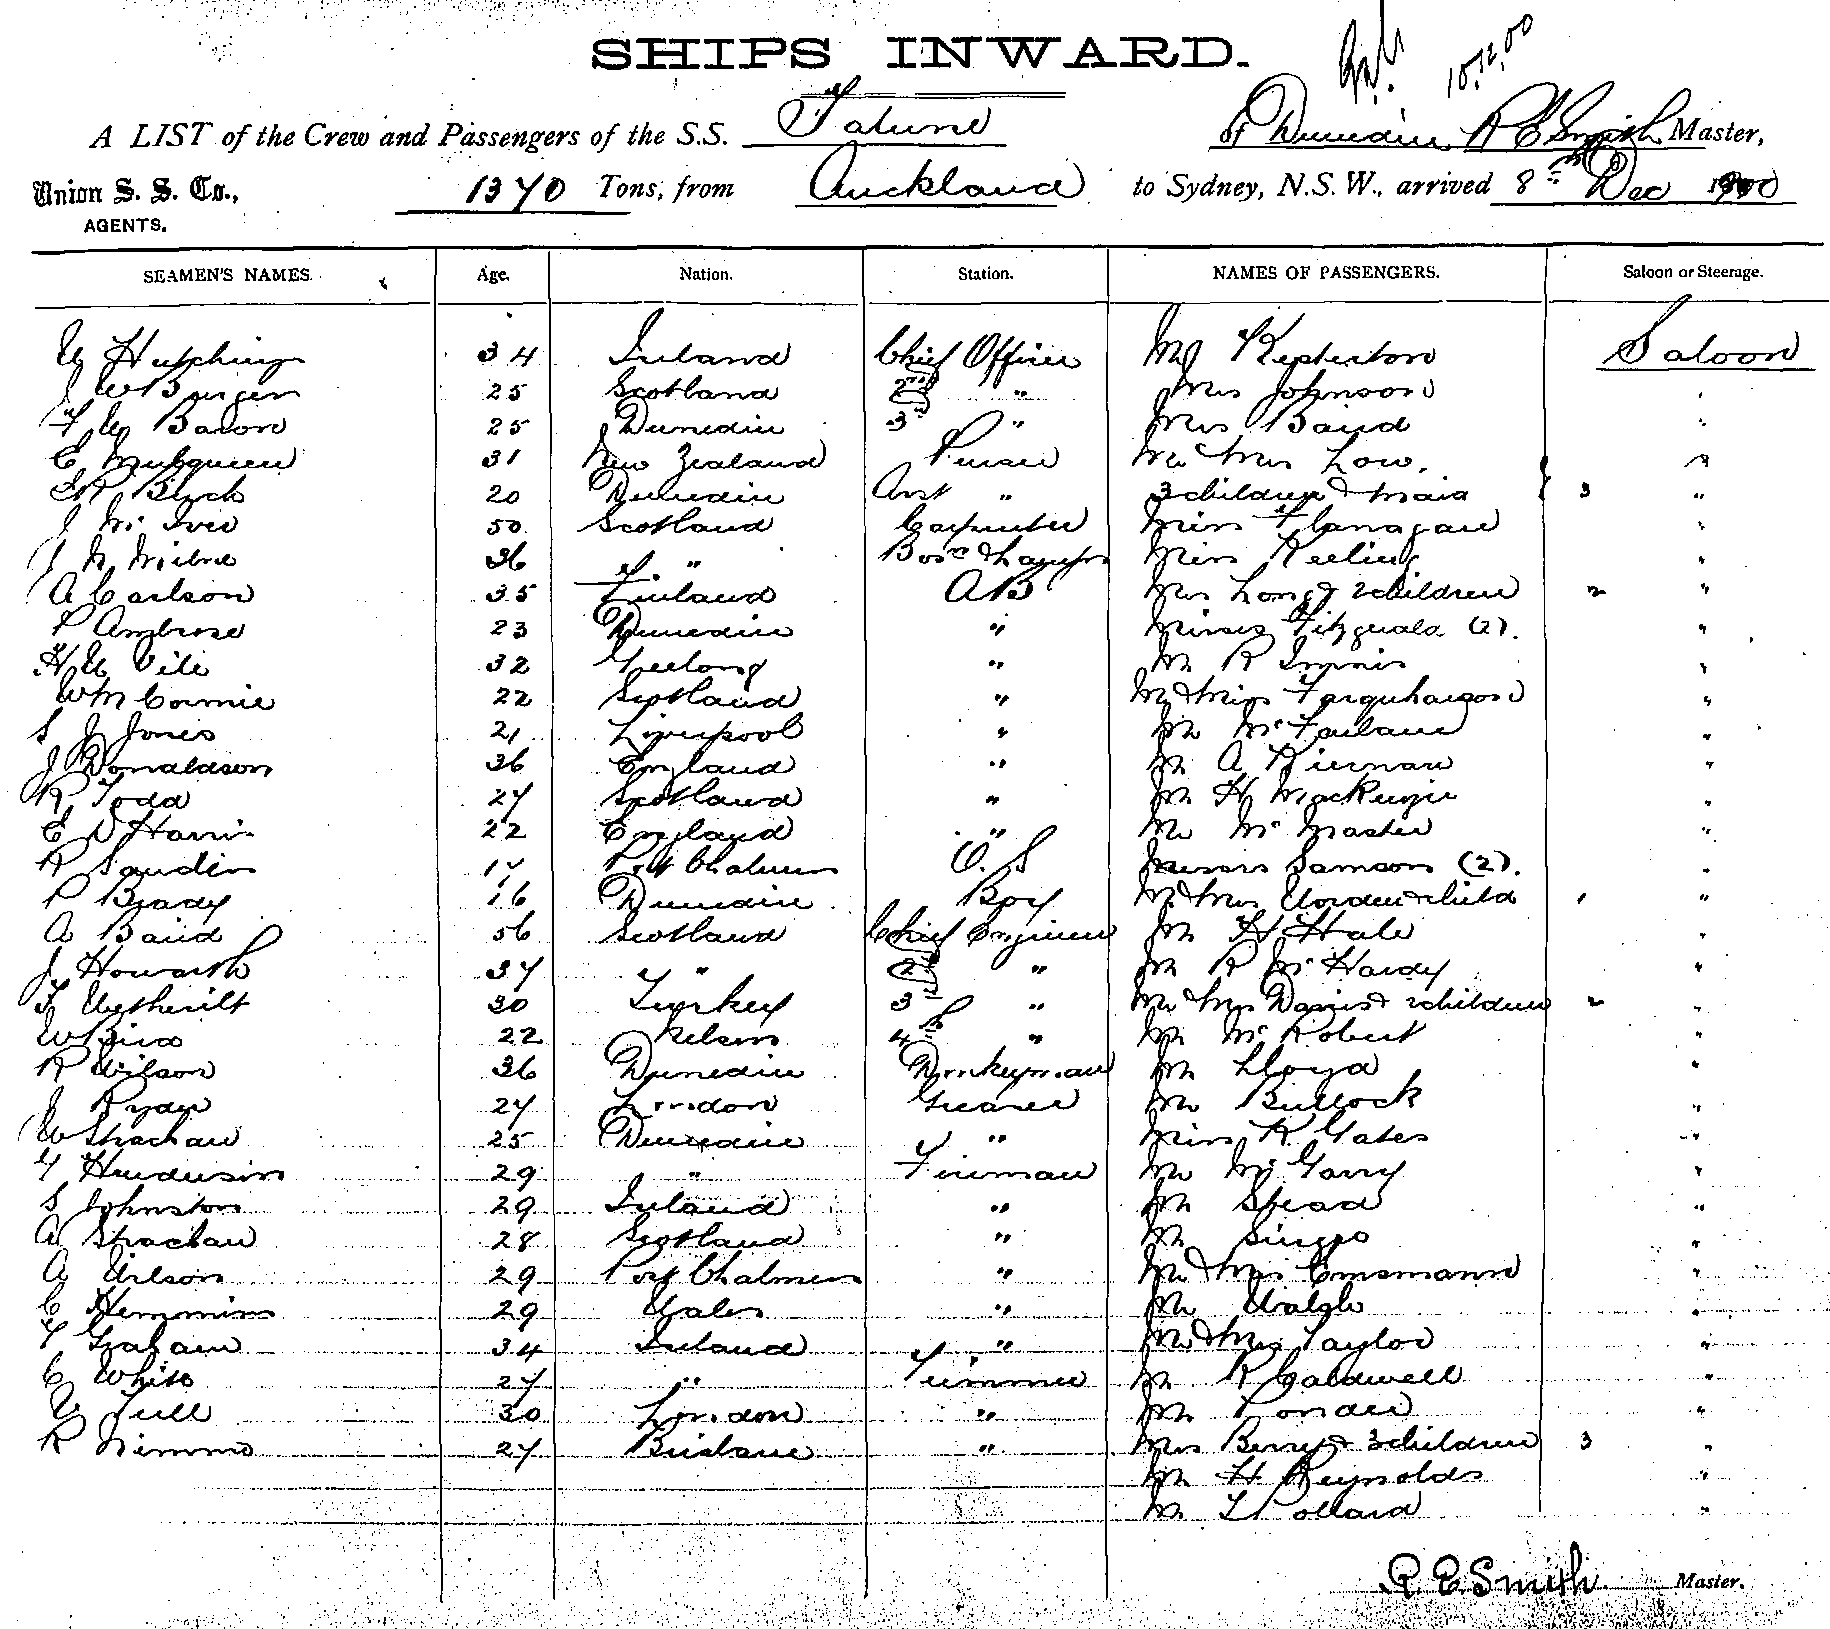 SHIPS INWARD.
10.12.00
A LIST of the Crew and Passengers of the S.S. Talune of Dunedin R E Smith Master,
Union S. S. Co., 1370 Tons, from Auckland to Sydney, N.S.W., arrived 8th Dec 1900
AGENTS.
SEAMEN'S NAMES. Age. Nation. Station. NAMES OF PASSENGERS. Saloon or Steerage.
W Hutchings 34 Ireland Chief Officer Mr Saloon
J W Burgen 25 Scotland 2nd " Mrs Johnson "
F W Bacon 25 Dunedin 3rd " Mrs Baird "
E 31 New Zealand Purser Mr Mrs Low, "
Birch 20 Dunedin Asst " 3 children & maid } 3 "
J McIver 50 Scotland Carpenter Miss Flanagan "
J N Milne 36 " " Bosn & Lamps Miss Keeling "
A Carlson 35 Finland AB Mrs Long & 2 children 2 "
P Ambrose 23 Dunedin " Misses Fitzgerald (2). "
H W Vile 32 Geelong " Mr R Innis "
W McCormie 22 Scotland " Mr & Miss Farquharson "
S J Jones 21 Liverpool " Mr McFarlane "
J Donaldson 36 England " Mr A Kiernan "
R Todd 27 Scotland " Mr H MacKenzie "
E D Harris 22 England " Mr McMaster "
R Saudin 17 Port Chalmers O. S Messrs Samson (2). "
P Brady 16 Dunedin Boy Mr & Mrs Worden & child 1 "
A Baird 56 Scotland Chief Engineer Mr H Hale "
J Howarth 37 " " 2nd " Mr R McHardy "
F Wetherilt 30 Turkey 3rd " Mr & Mrs Davis & 2 children 2 "
W Bird 22 Nelson 4th " Mr McRobert "
R Wilson 36 Dunedin Donkeyman Mr Lloyd "
J Ryder 27 London Greaser Mr Bullock "
W Strachan 25 Dunedin " Miss K Gates "
G Henderson 29 " Fireman Mr McGarry "
S Johnston 29 Ireland " Mr Stead "
A Strachan 28 Scotland " Mr "
A Wilson 29 Port Chalmers " Mr & Mrs Emsmann "
C Hemmins 29 Wales " Mr Walsh "
T Graham 34 Ireland " Mr & Mrs Taylor "
C White 27 " Trimmer Mr R Caldwell "
W Tull 30 London " Mr "
R Nimmo 27 Brisbane " Mrs Berry & 3 children 3 "
Mr H Reynolds "
Mr L Pollard "
R. E. Smith Master.